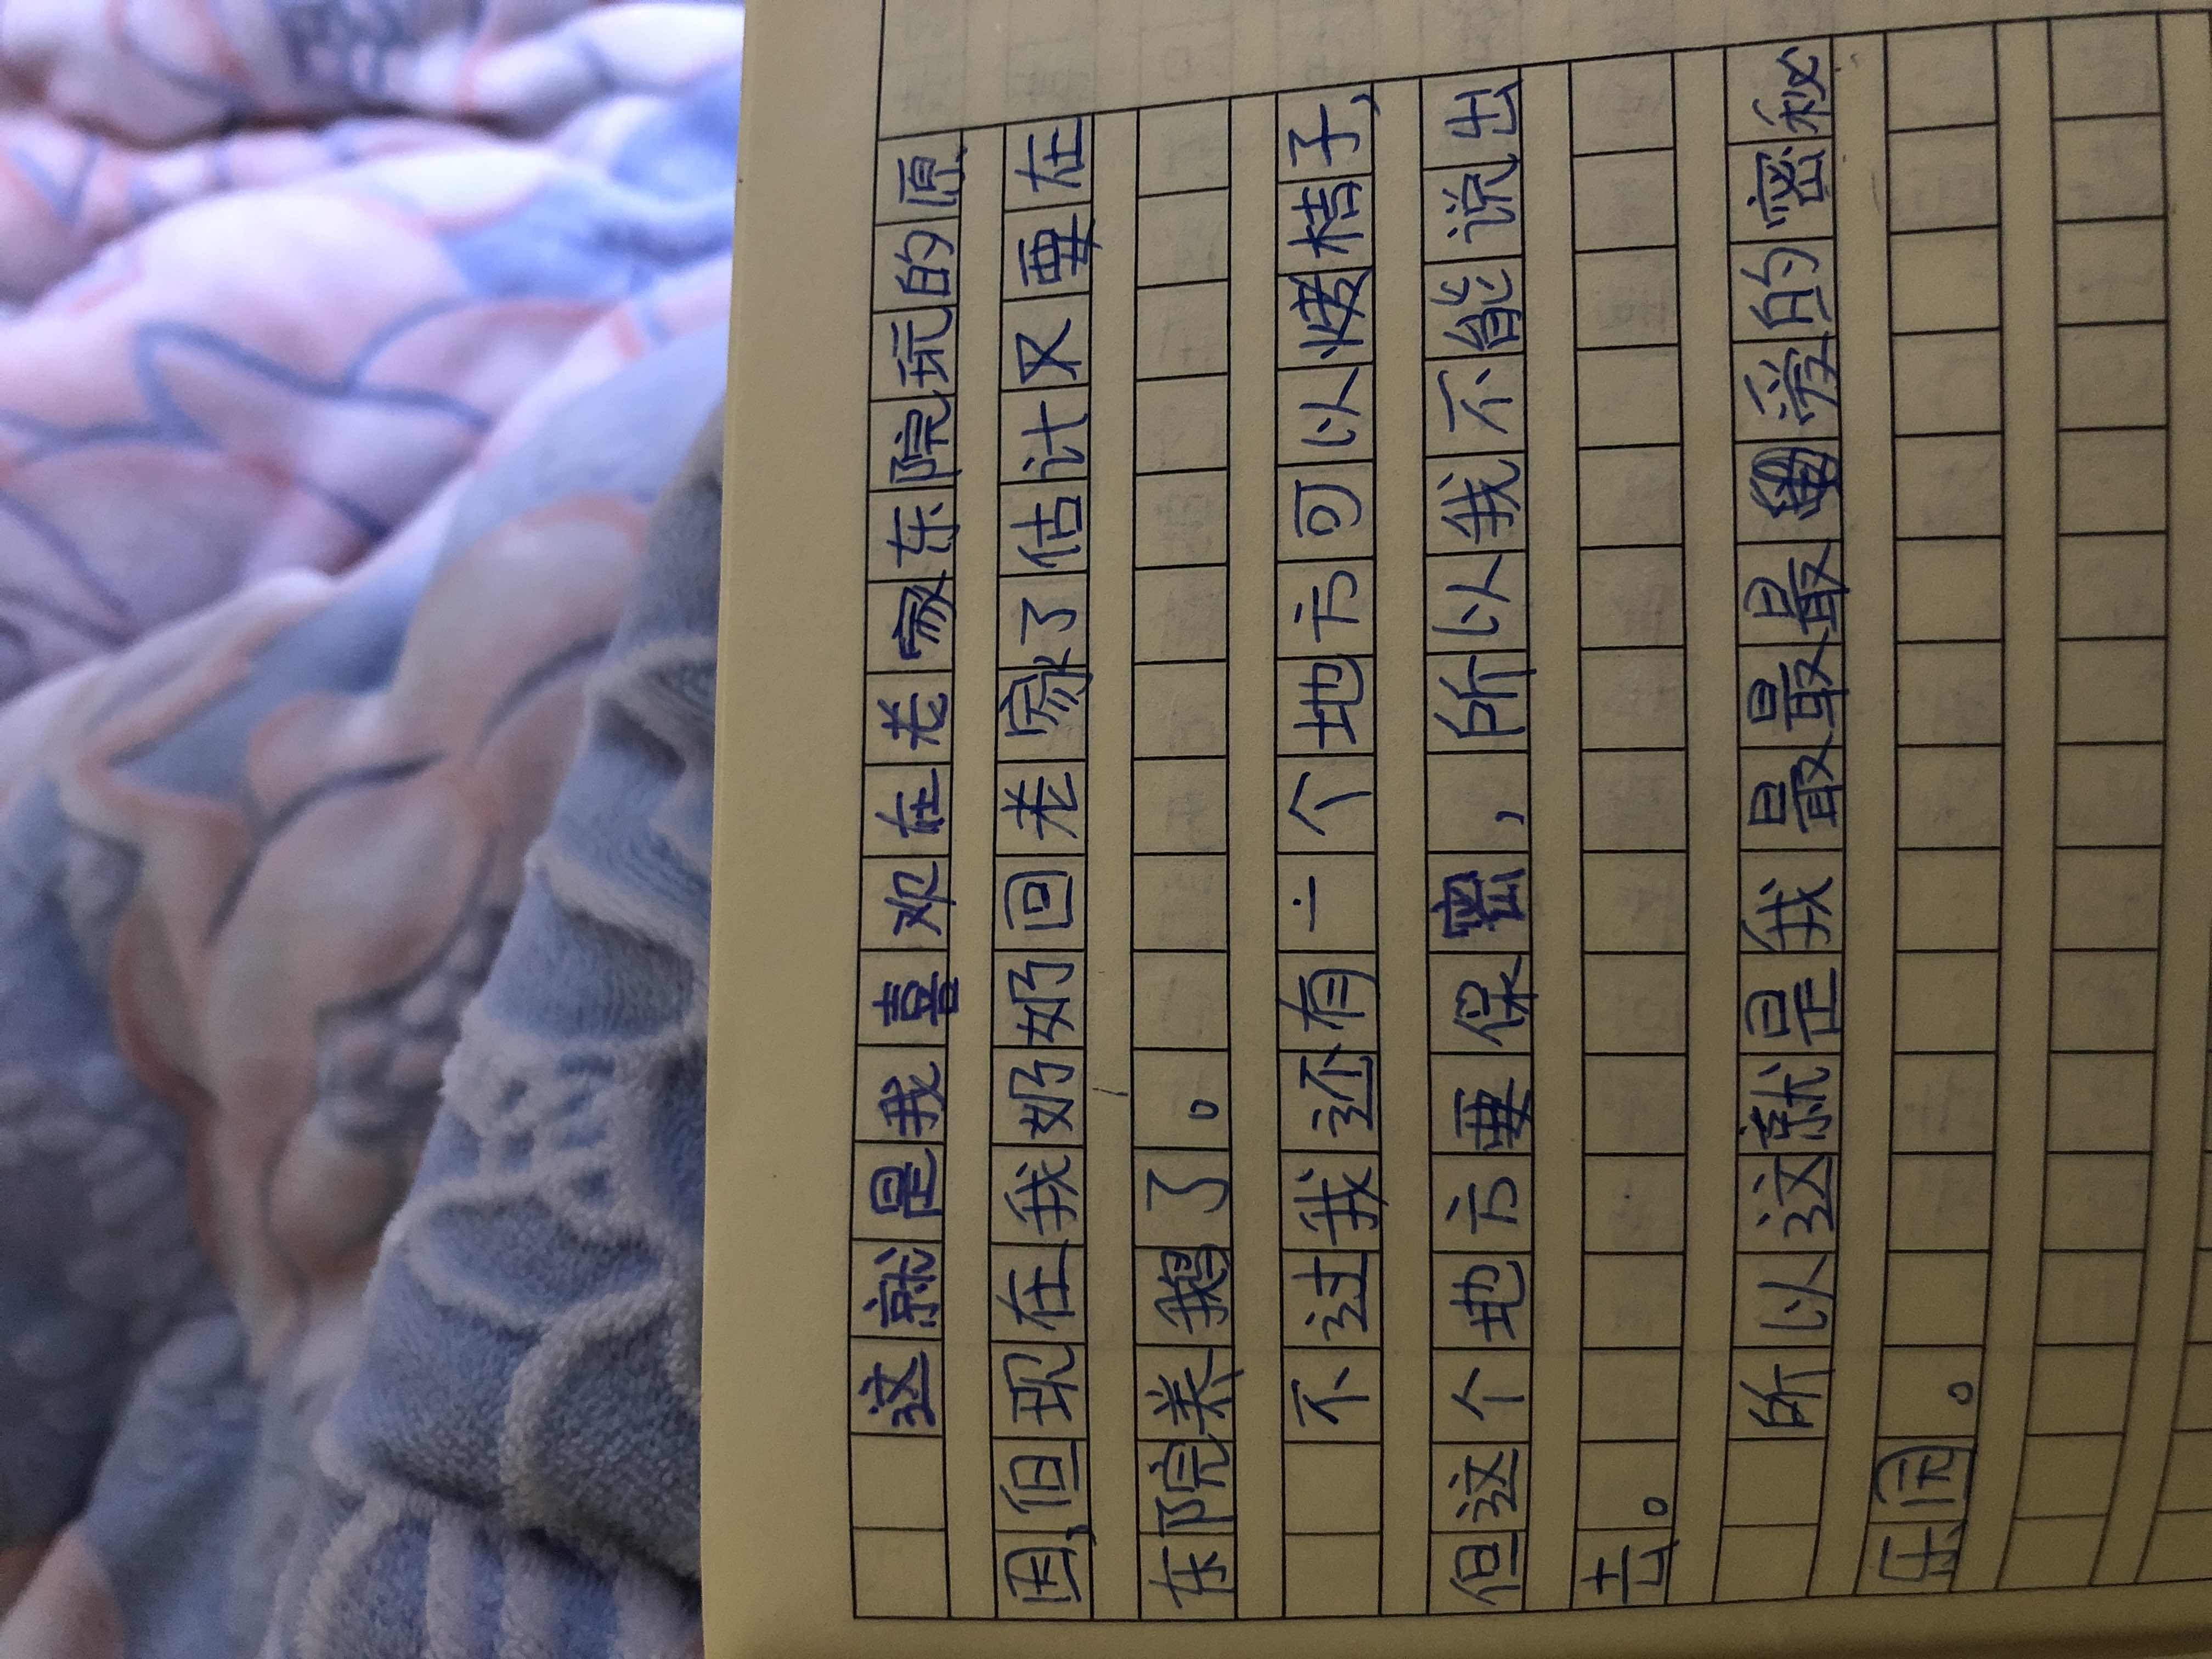 这就是我喜欢在老家东院玩的原
因,但现在我奶奶回老家了估计又要在
东院养鹅了。
不过我还有一个地方可以烤桔子,
但这个地方要保密,所以我不能说出
去。
所以这就是我最最最爱的密秘
乐园。